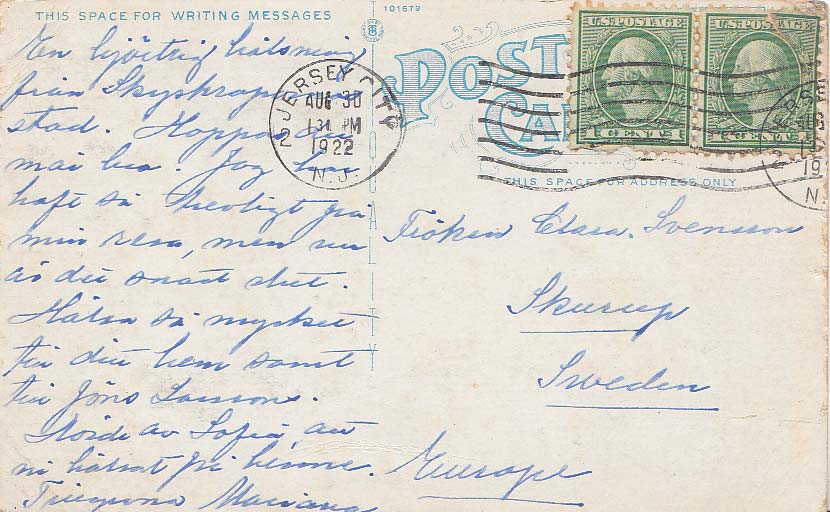 THIS SPACE FOR WRITING MESSAGES
101679
POST
CA
U.S. POSTAGE
U.S. POSTAGE
1 CENT 1
CENTS
JERSEY CITY
AUG 30
PM
1922
N.J.
THIS SPACE FOR ADDRESS ONLY
En hjärtlig hälsning
från
stad. Hoppas du
mår bra. Jag har
haft så trevligt på
min resa, men nu
är det snart slut.
Hälsa så mycket
till ditt hem samt
till Jöns Larssons.
Hörde av Sofia, att
ni hälsat på henne.
Fröken Clara. Svensson
Skurup
Sweden
Europe